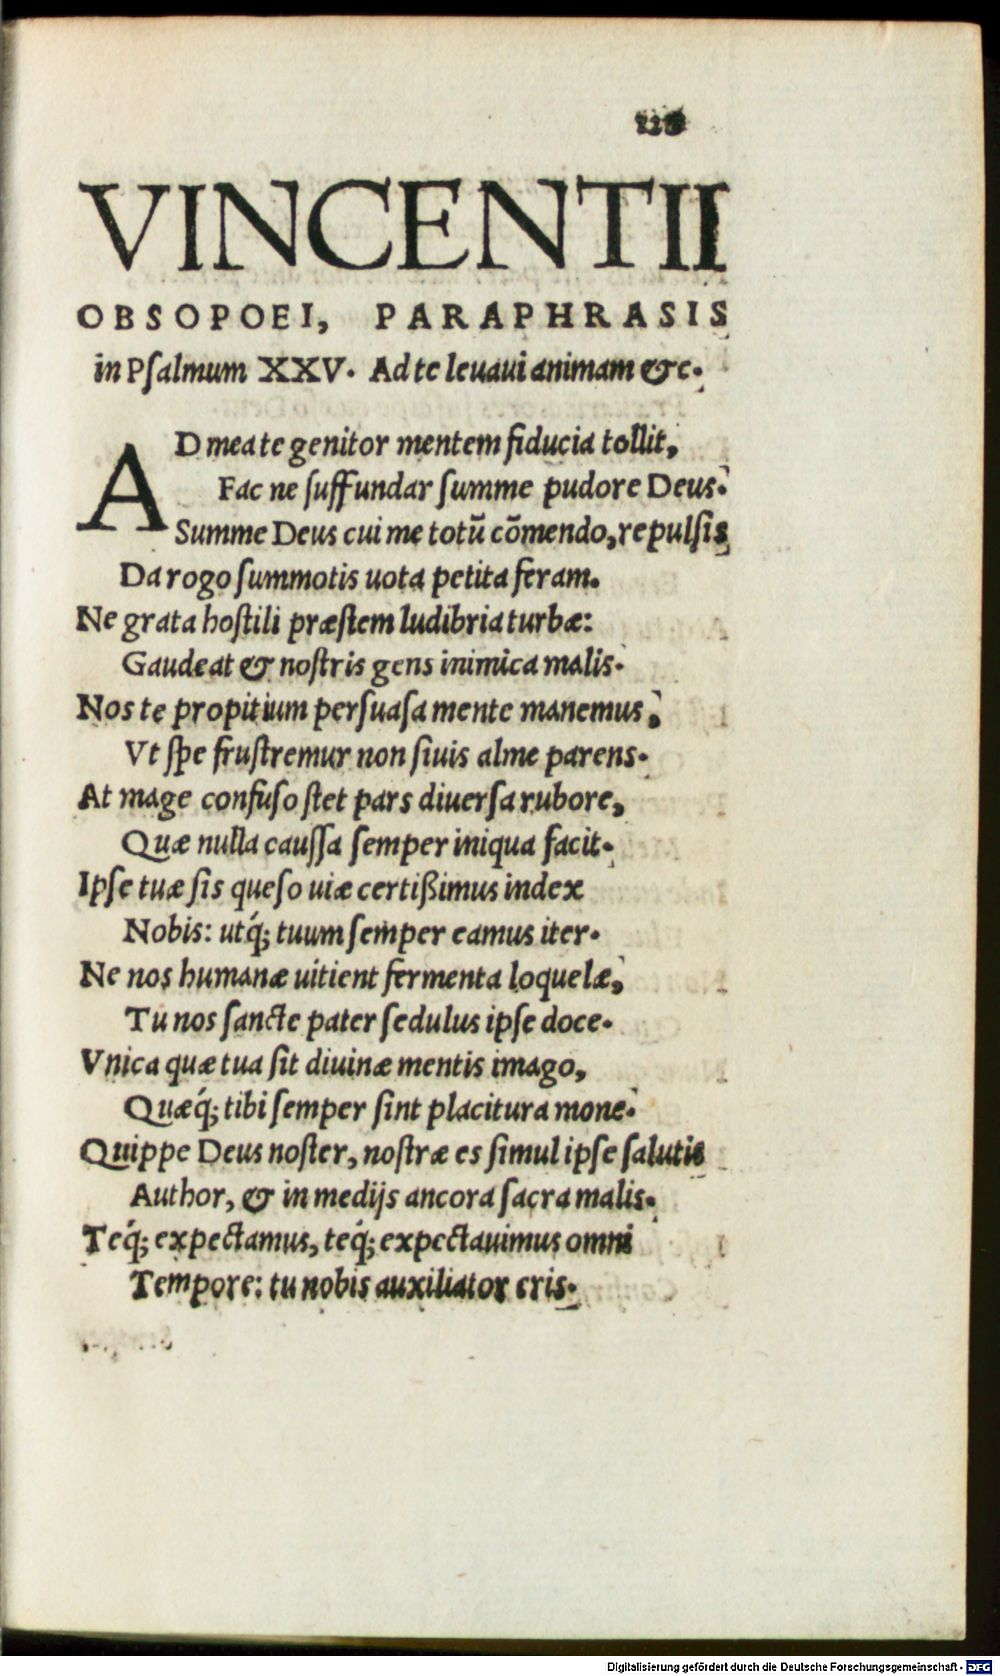 VINCENTII
OBSOPOEI, PARAPHRASIS
in Pſalmum XXV. Ad te leuaui animam &c.
AD mea te genitor mentem fiducia tollit,
Fac ne ſuffundar ſumme pudore Deus.
Summe Deus cui me totū cōmendo, repulſis
Da rogo ſummotis uota petita feram.
Ne grata hoſtili præſtem ludibria turbæ:
Gaudeat & noſtris gens inimica malis.
Nos te propitium perſuaſa mente manemus,
Vt ſpe fruſtremur non ſiuis alme parens.
At mage confuſo ſtet pars diuerſa rubore,
Quæ nulla cauſſa ſemper iniqua facit.
Ipſe tuæ ſis queſo uiæ certißimus index
Nobis: utq́; tuum ſemper eamus iter.
Ne nos humanæ uitient fermenta loquelæ,
Tu nos ſancte pater ſedulus ipſe doce.
Vnica quæ tua ſit diuinæ mentis imago,
Quæq́; tibi ſemper ſint placitura mone.
Quippe Deus noſter, noſtræ es ſimul ipſe ſalutis
Author, & in medijs ancora ſacra malis.
Teq́; expectamus, teq́; expectauimus omni
Tempore: tu nobis auxiliator eris.
Digitalisierung gefördert durch die Deutsche Forschungsgemeinschaft - DFG